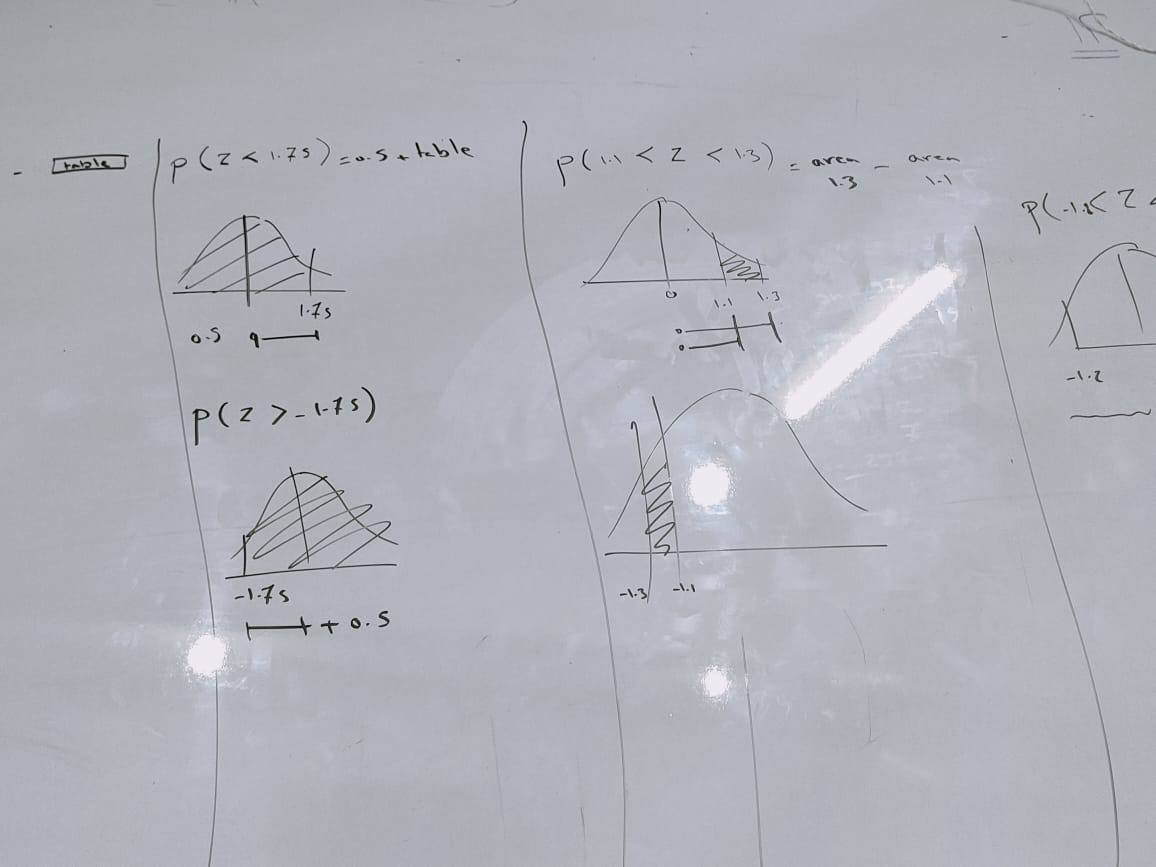 - table
P(Z < 1.75) = 0.5 + table
1.75
0.5
P(Z > -1.75)
-1.75
+ 0.5
P(1.1 < Z < 1.3) = area 1.3 - area 1.1
0 1.1 1.3
0
0
-1.3 -1.1
P(-1. < Z <
-1.2